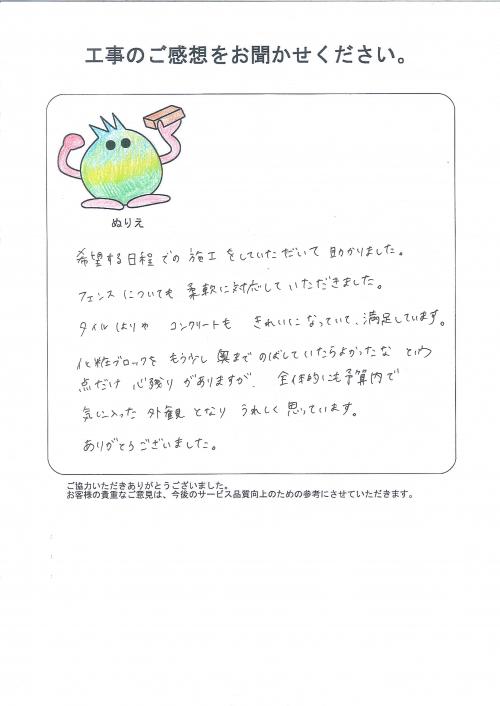 工事のご感想をお聞かせください。
ぬりえ
希望する日程での施工をしていただいて助かりました。
フェンスについても柔軟に対応していただきました。
タイルはりや コンクリートも きれいになっていて、満足しています。
化粧ブロックを もう少し奥まで のばしていたらよかったな という
点だけ 心残り がありますが、 全体的にも予算内で
気に入った 外観 となり うれしく 思っています。
ありがとうございました。
ご協力いただきありがとうございました。
お客様の貴重なご意見は、今後のサービス品質向上のための参考にさせていただきます。